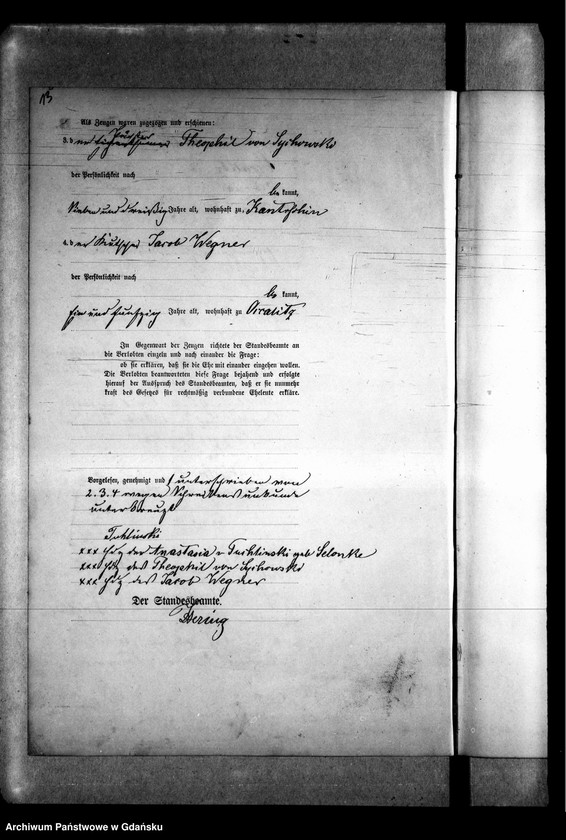 Als Zeugen waren zugezogen und erschienen:
3. der Theophil von
der Persönlichkeit nach
be kannt,
sieben und dreißig Jahre alt, wohnhaft zu Kantrschin
4. der Kutscher Jacob Wegner
der Persönlichkeit nach
be kannt,
ein und fünfzig Jahre alt, wohnhaft zu
In Gegenwart der Zeugen richtete der Standesbeamte an
die Verlobten einzeln und nach einander die Frage:
ob sie erklären, daß sie die Ehe mit einander eingehen wollen.
Die Verlobten beantworteten diese Frage bejahend und erfolgte
hierauf der Ausspruch des Standesbeamten, daß er sie nunmehr
kraft des Gesetzes für rechtmäßig verbundene Eheleute erkläre.
Vorgelesen, genehmigt und unterschrieben von
2. 3. 4 wegen Schreibensunkunde
unterkreuzt
xxx Hz der Anastasia v geb Selonke
xxx Hz des Theophil von
xxx Hz des Jacob Wegner
Der Standesbeamte.
Hering
Archiwum Państwowe w Gdańsku